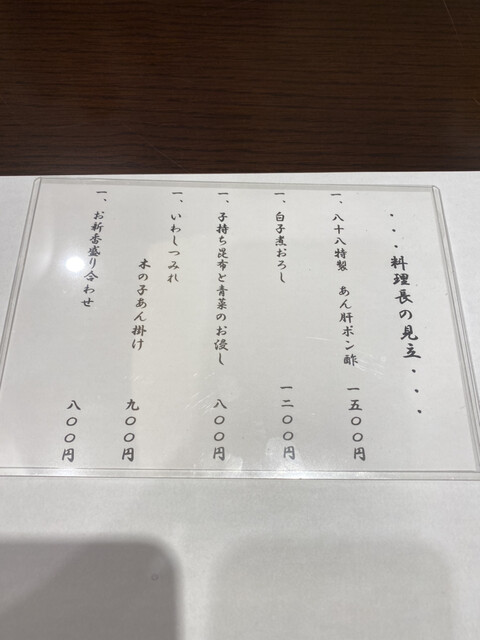 ・・・料理長の見立・・・
一、八十八特製 あん肝ポン酢 一五〇〇円
一、白子煮おろし 一二〇〇円
一、子持ち昆布と青菜のお浸し 八〇〇円
一、いわしつみれ
木の子あん掛け 九〇〇円
一、お新香盛り合わせ 八〇〇円